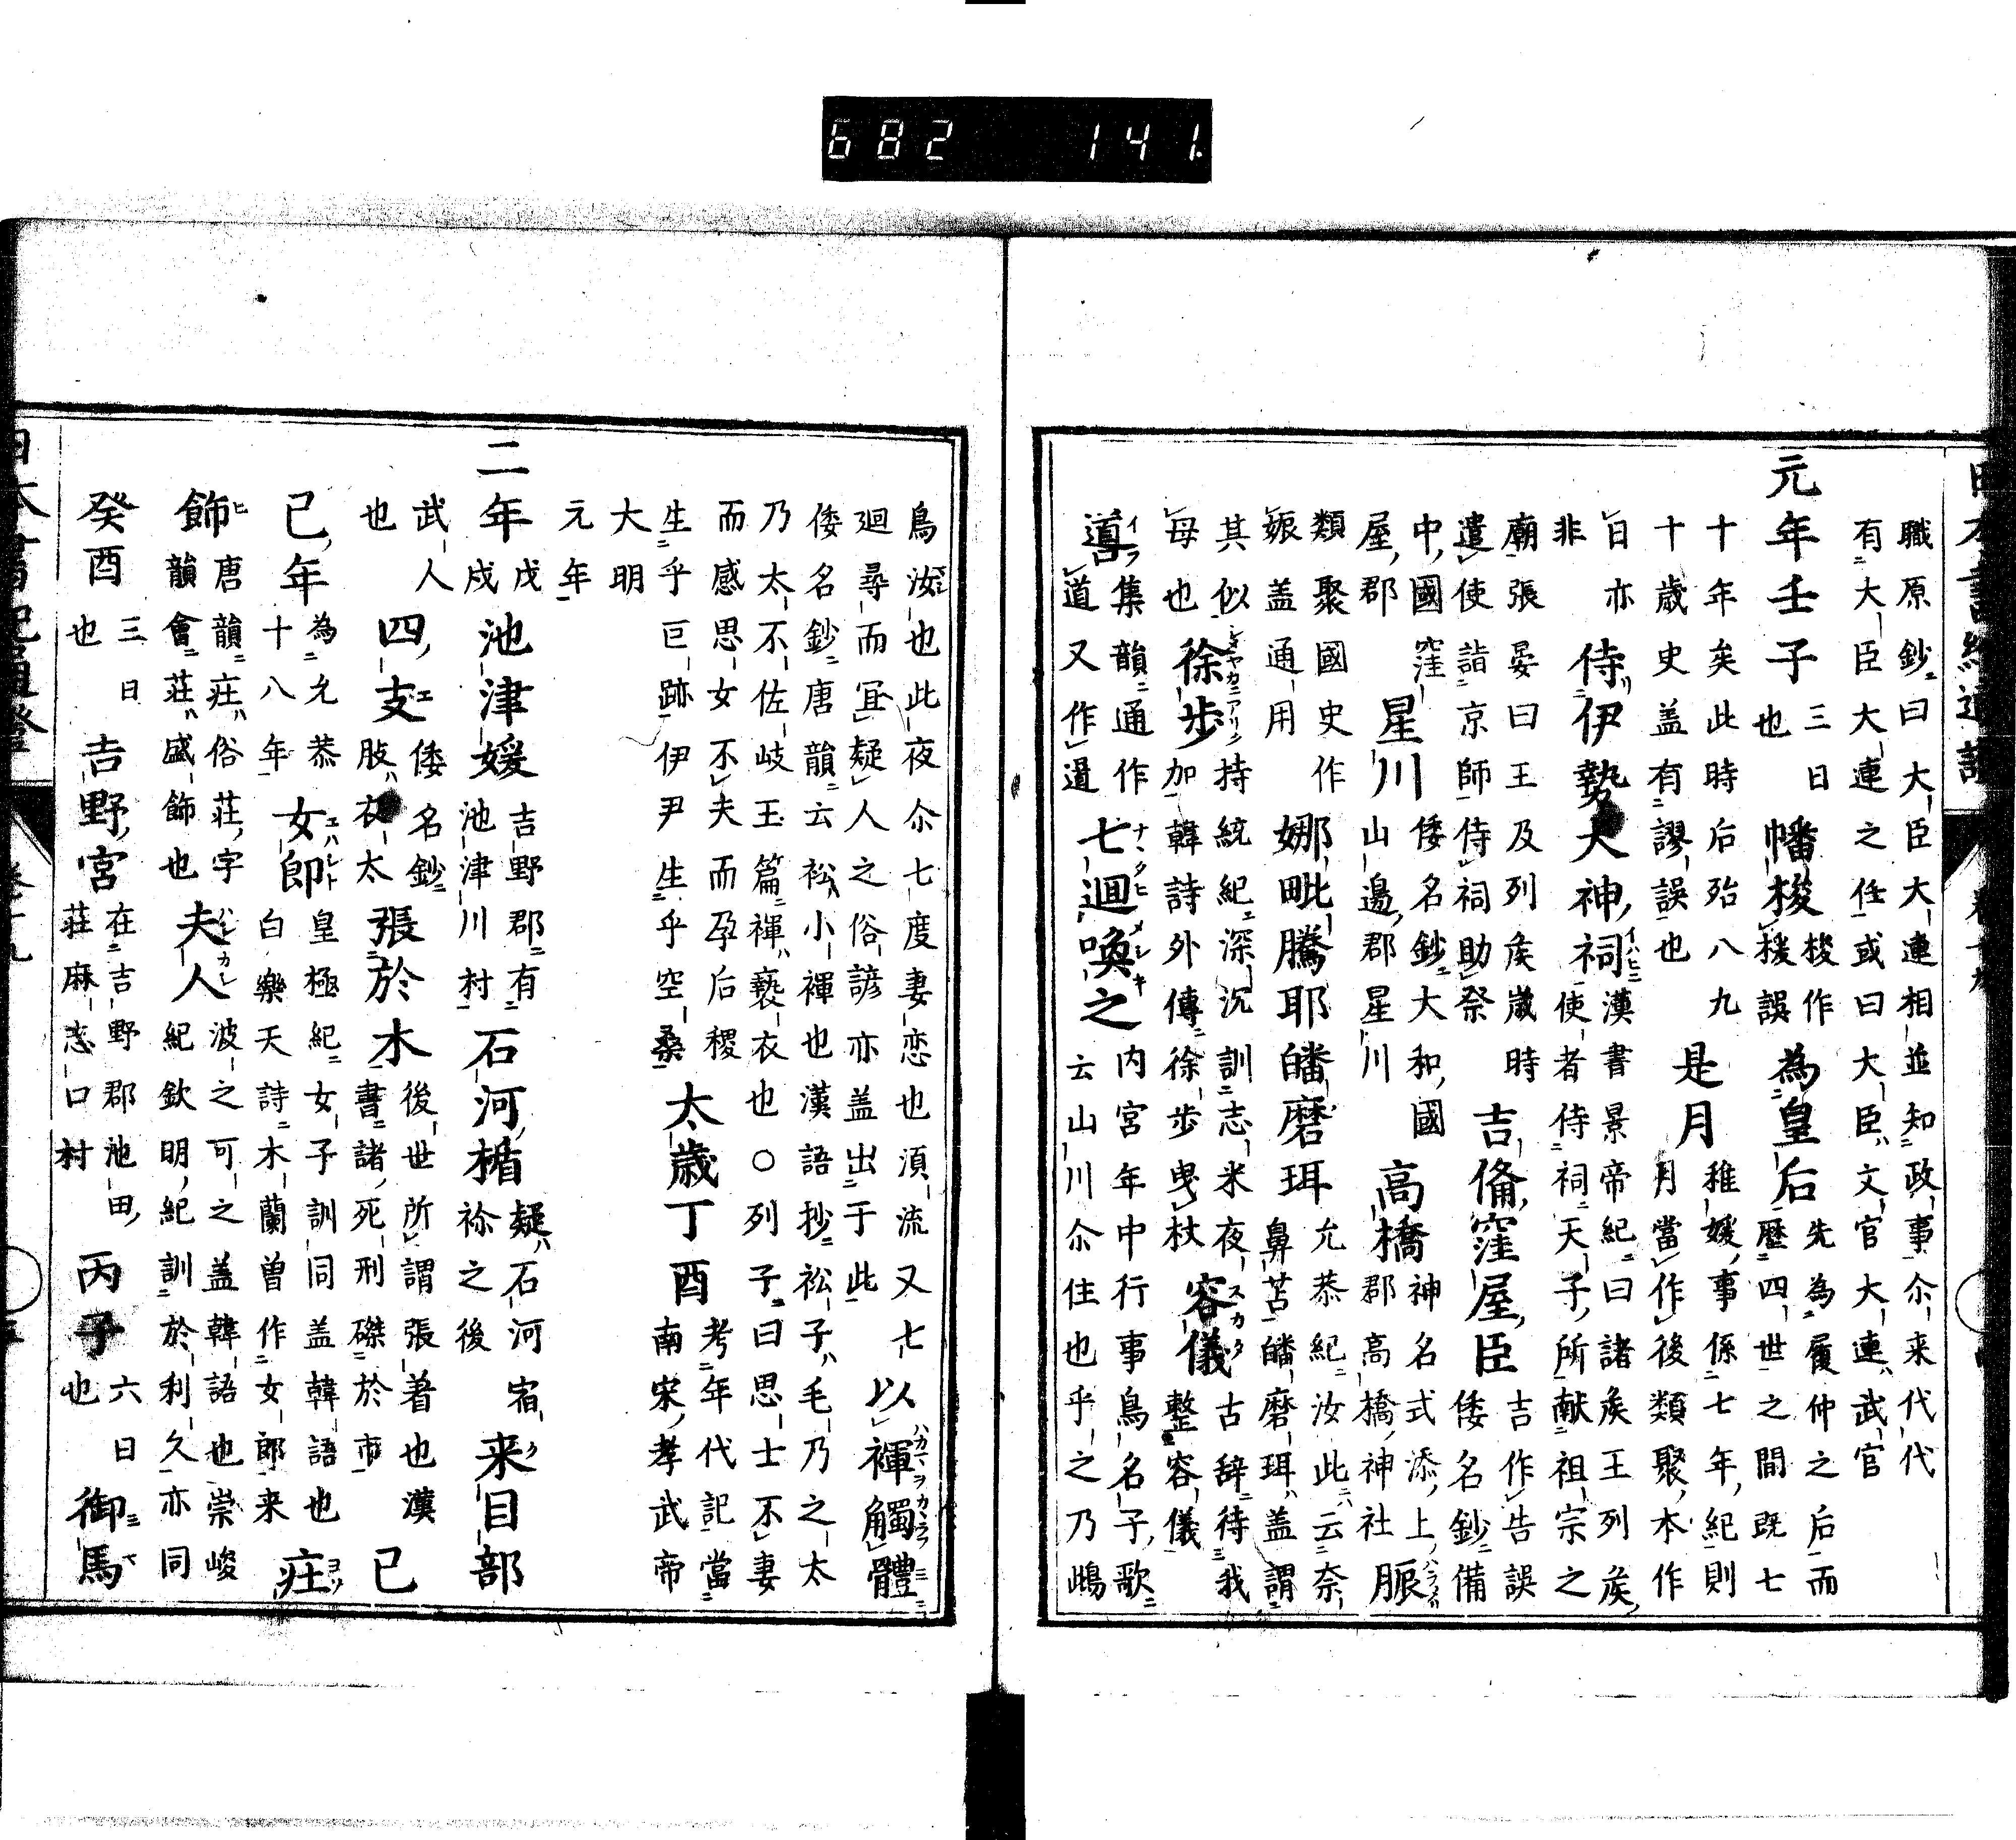 682 141.
職原鈔曰大臣大連相並知政事尒来代代
有大臣大連之任或曰大臣文官大連武官
元年壬子三日也幡梭梭作椄誤為皇后先為履仲之后而歴四世之間既七
十年矣此時后殆八九十歳史盖有謬誤也是月稚媛事係七年紀則月當作後類聚本作
日亦非侍伊勢大神祠漢書景帝紀曰諸矦王列矦使者侍祠天子所献祖宗之
廟張晏曰王及列矦嵗時遣使詣京師侍祠助祭吉備窪屋臣吉作告誤倭名鈔備
中國窪屋郡星川倭名鈔大和國山邊郡星川高橋神名式添上郡高橋神社脤
類聚國史作娠盖通用娜毗騰耶皤磨珥允恭紀汝此云奈鼻苫皤磨珥盖謂
其似母也徐歩持統紀深沉訓志米夜加韓詩外傳徐歩曳杖容儀古辞待我整容儀
導集韻通作道又作噵七廻喚之内宮年中行事鳥名子歌云山川尒住也乎之乃鴫
鳥汝也此夜尒七度妻恋也湏流又七
廻尋而冝疑人之俗諺亦盖出于此以褌觸體
倭名鈔唐韻云衳小褌也漢語抄衳子毛乃之太
乃太不佐岐玉篇褌褻衣也○列子曰思士不妻
而感思女不夫而孕后稷
生乎巨跡伊尹生乎空桑太歳丁酉考年代記當南宋孝武帝
大明
元年
二年戊戌池津媛吉野郡有池津川村石河楯疑石河宿祢之後来目部
武人也四支倭名鈔肢衣太張於木後世所謂張着也漢書諸死刑磔於市已
已年為允恭十八年女郎皇極紀女子訓同盖韓語也白樂天詩木蘭曽作女郎来庄
飾唐韻庄俗荘字韻會荘盛飾也夫人波之可之盖韓語也崇峻紀欽明紀訓於利久亦同
癸酉三日也吉野宮在吉野郡池田荘麻志口村丙子六日也御馬